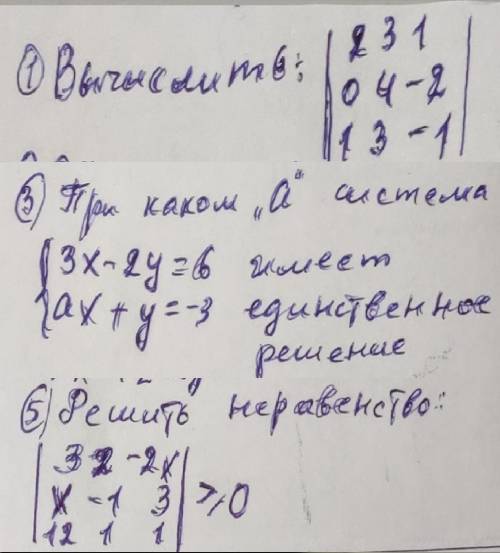 ① Вычислить: | 2 3 1 |
| 0 4 -2 |
| 1 3 -1 |
③ При каком „а" система
{ 3x - 2y = 6 имеет
{ ax + y = -3 единственное
решение
⑤ Решить неравенство:
| 3 2 -2x |
| x -1 3 | ⩾ 0
| 12 1 1 |